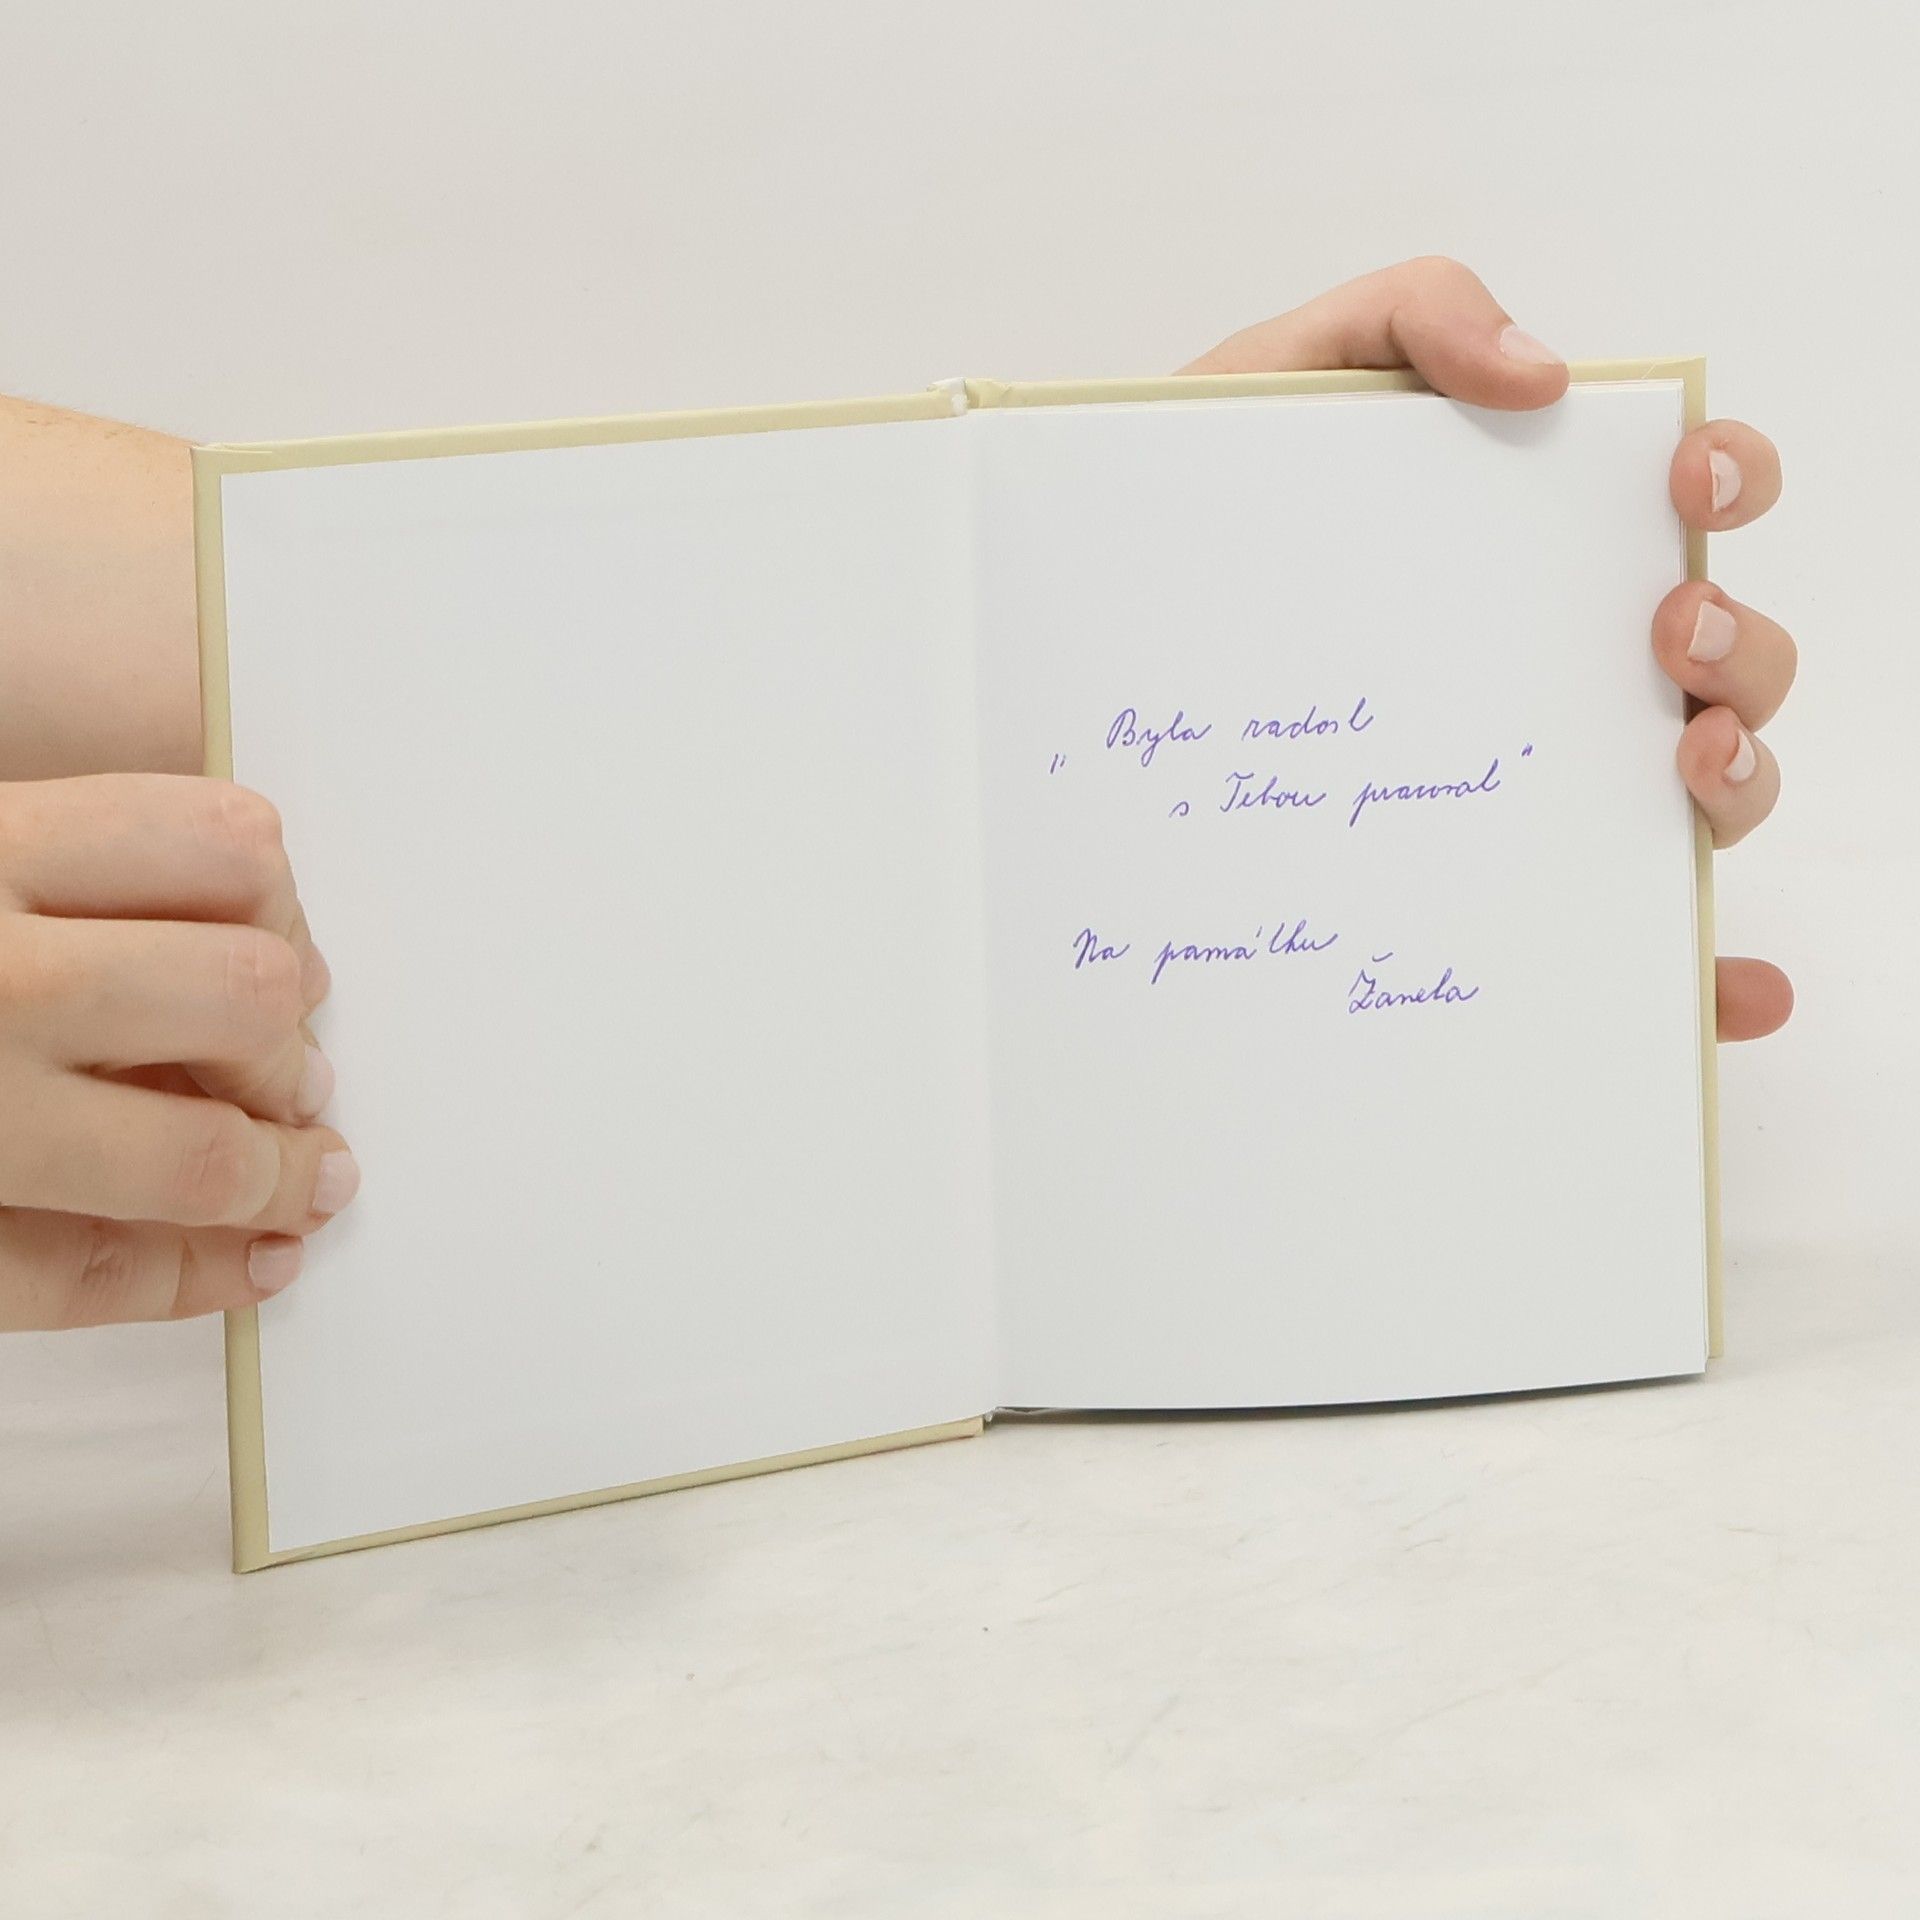 „Byla radost
s Tebou pracovat“
Na památku
Žaneta